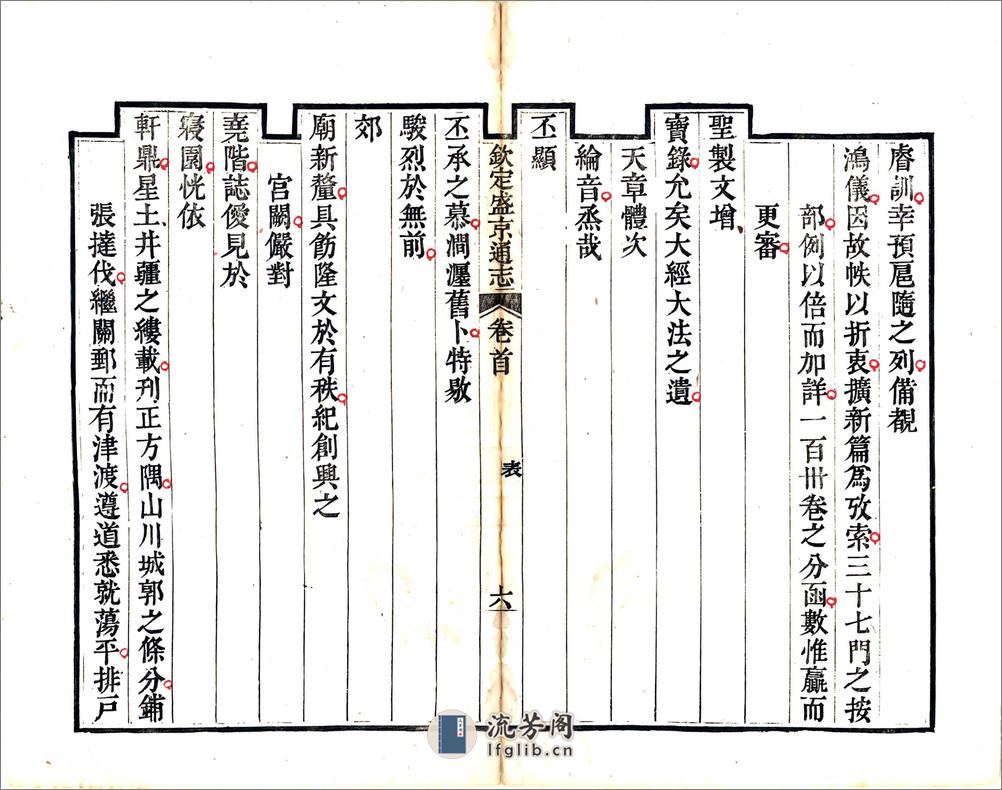 睿訓幸預扈隨之列備覩
鴻儀因故帙以折衷擴新篇爲攷索三十七門之按
部例以倍而加詳一百卅卷之分函數惟贏而
更審
聖製文增
寶錄允矣大經大法之遺
天章體次
綸音烝哉
丕顯
欽定盛京通志 卷首 表 六
丕承之慕澗瀍舊卜特敭
駿烈於無前
郊
廟新釐具飭隆文於有秩紀創興之
宮闕儼對
堯階誌優見於
寢園恍依
軒鼎星土井疆之縷載刋正方隅山川城郭之條分鋪
張撻伐繼關郵而有津渡遵道悉就蕩平排戸
流芳阁
lfglib.cn